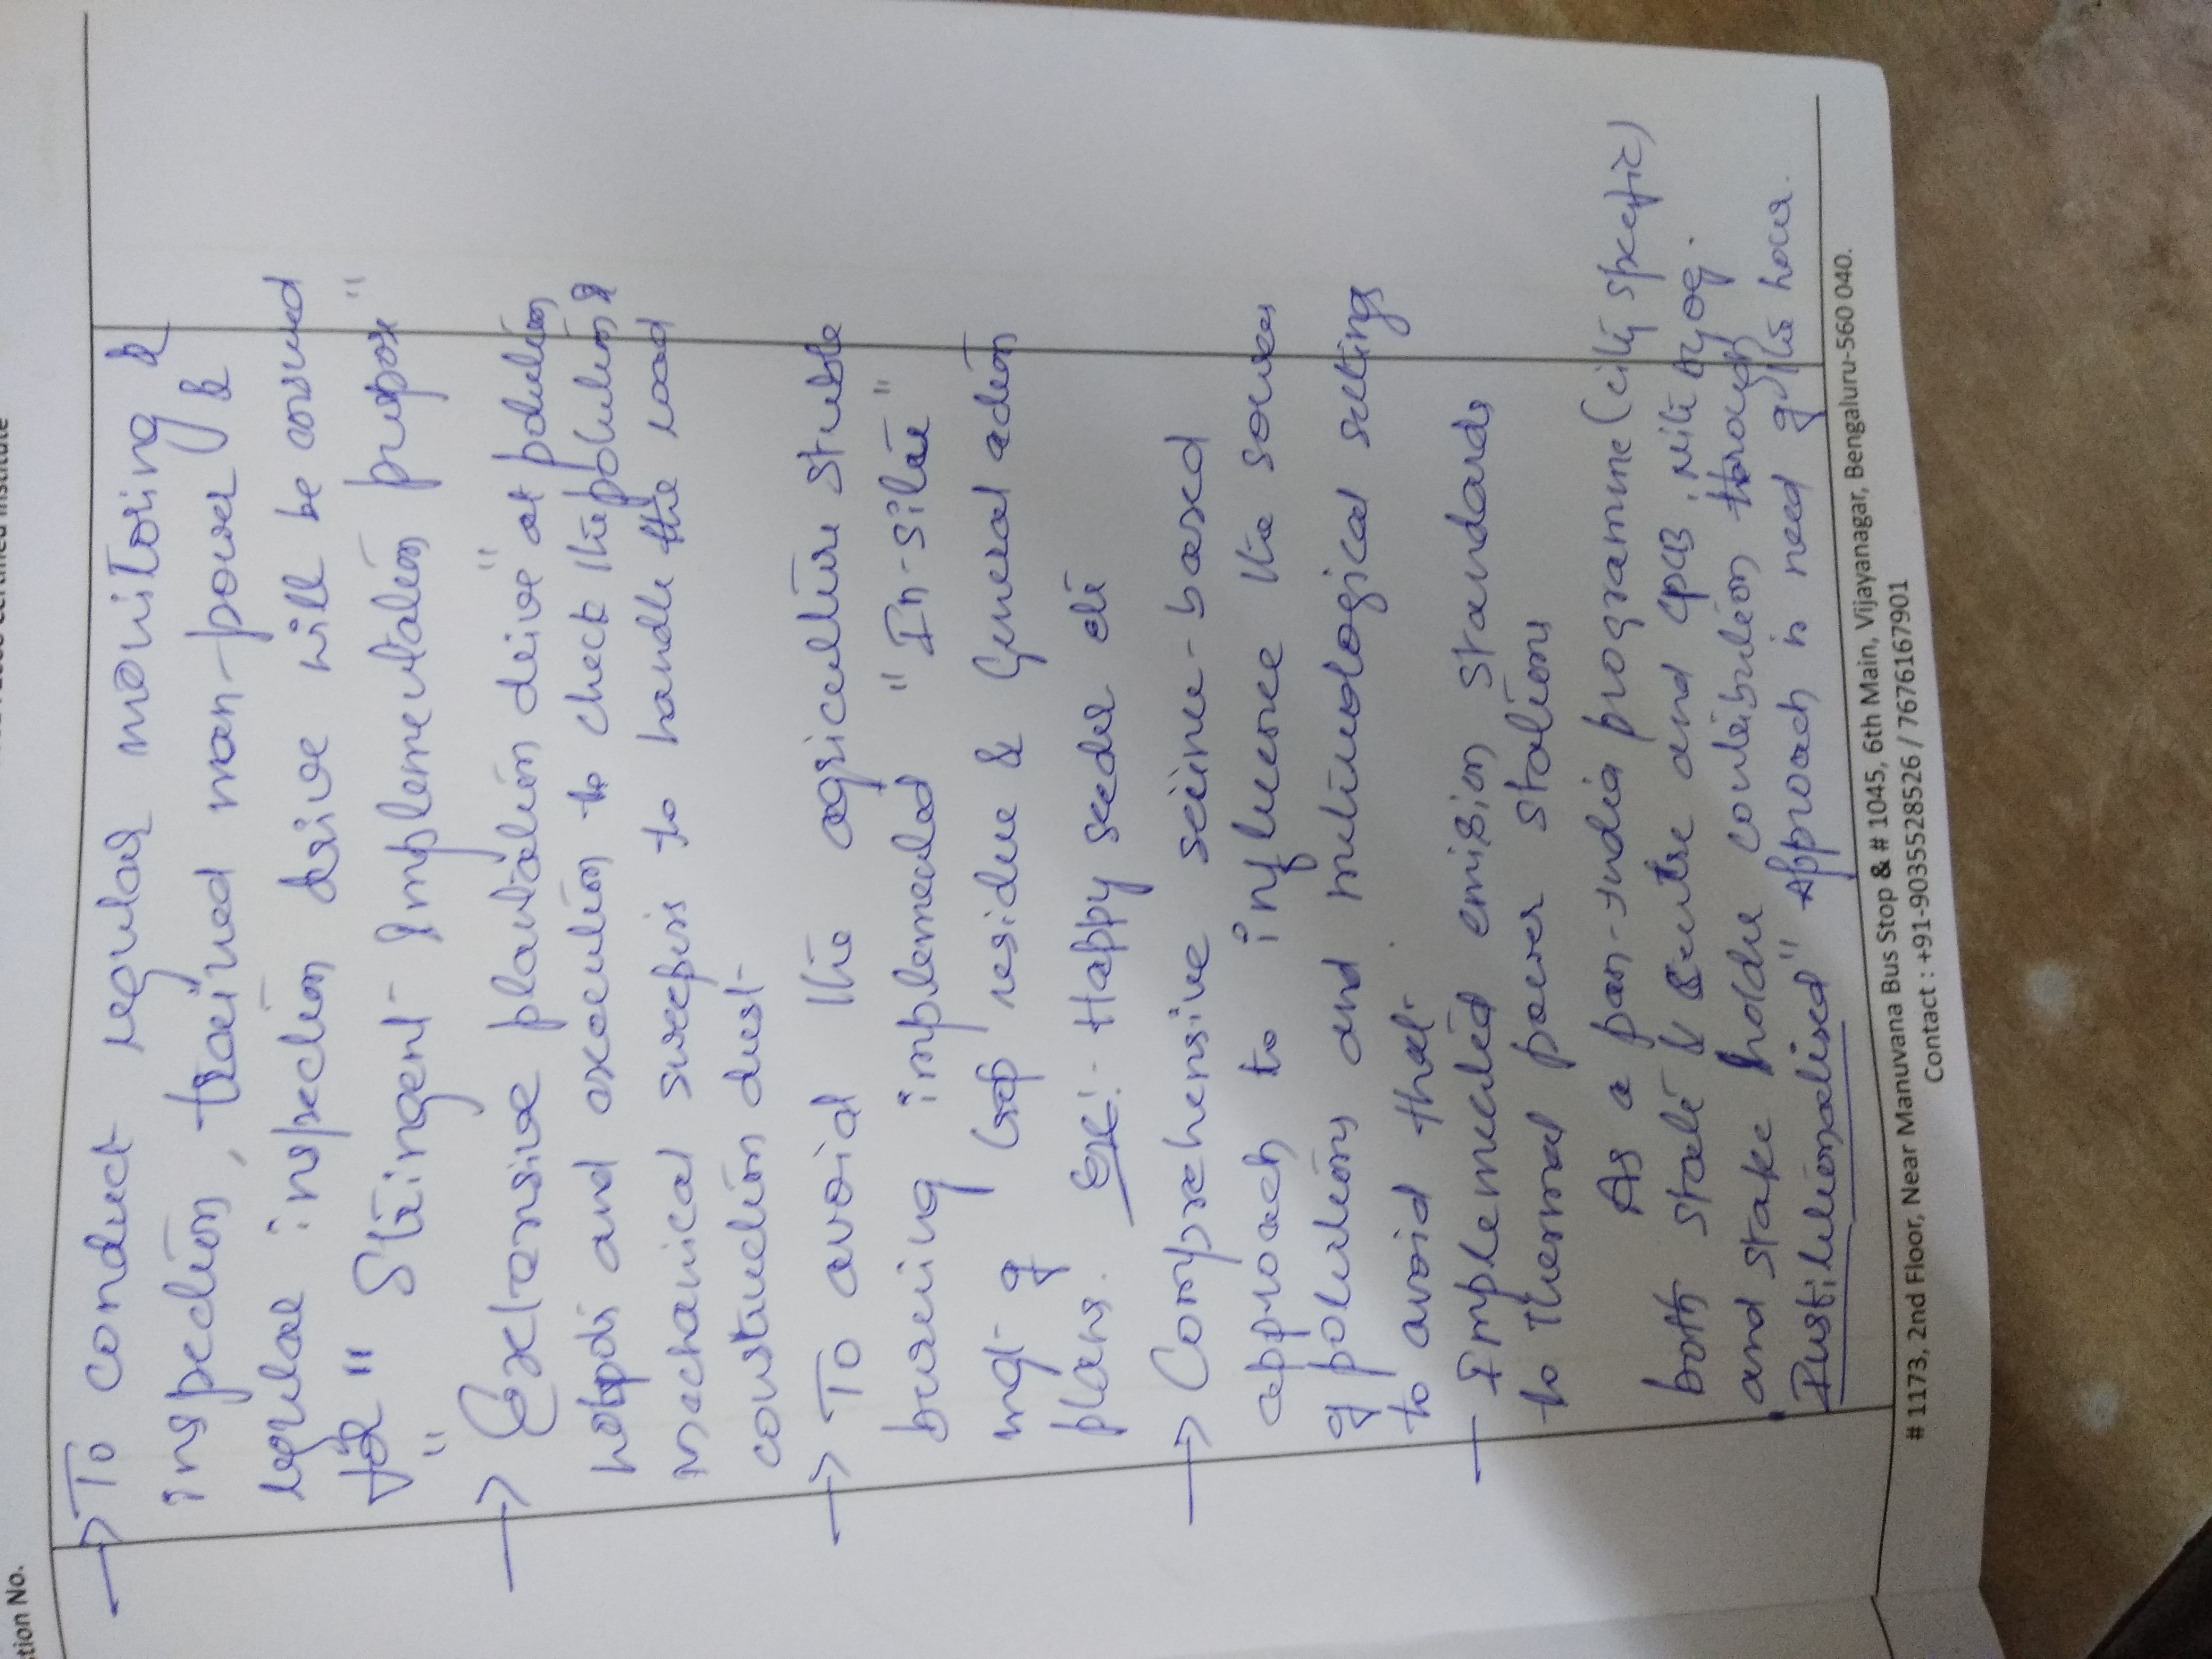 tion No.
→ To conduct regular monitoring &
inspection, trained man-power &
regular inspection drive will be ensured
for " Stringent Implementation purpose "
→ Extensive plantation drive" at polution
hotspots and execution to check the polution &
mechanical sweepers to handle the road
construction dust
→ To avoid the agriculture stuble
burning implemented "In-situ"
mgt of Crop residue & General action
plans. Ex:- Happy seeder etc
→ Comprehensive science-based
approach to influence the sources
of polutions and metimological settings
to avoid that.
— Implemented emision standards
to thermal power stations
As a pan-India programme (city specific)
both state & Centre and CPCB, niti ayog.
and stake holder contribution through
Institutionalised" Approach is need of the hour.
# 1173, 2nd Floor, Near Manuvana Bus Stop & # 1045, 6th Main, Vijayanagar, Bengaluru-560 040.
Contact : +91-9035528526 / 7676167901